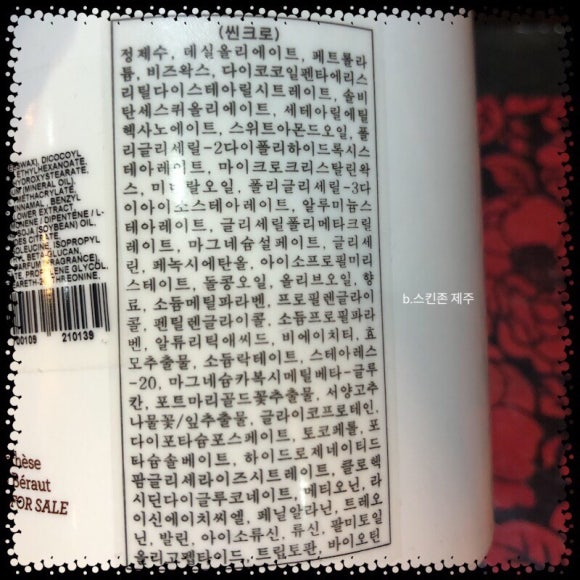 (씬크로)
정제수, 데실올리에이트, 페트롤라
툼, 비즈왁스, 다이코코일펜타에리스
리틸다이스테아릴시트레이트, 솔비
탄세스퀴올리에이트, 세테아릴에틸
헥사노에이트, 스위트아몬드오일, 폴
리글리세릴-2다이폴리하이드록시스
테아레이트, 마이크로크리스탈린왁
스, 미네랄오일, 폴리글리세릴-3다
이아이소스테아레이트, 알루미늄스
테아레이트, 글리세릴폴리메타크릴
레이트, 마그네슘설페이트, 글리세
린, 페녹시에탄올, 아이소프로필미리
스테이트, 돌콩오일, 올리브오일, 향
료, 소듐메틸파라벤, 프로필렌글라이
콜, 펜틸렌글라이콜, 소듐프로필파라
벤, 알류리틱애씨드, 비에이치티, 효
모추출물, 소듐락테이트, 스테아레스
-20, 마그네슘카복시메틸베타-글루
칸, 포트마리골드꽃추출물, 서양고추
나물꽃/잎추출물, 글라이코프로테인,
다이포타슘포스페이트, 토코페롤, 포
타슘솔베이트, 하이드로제네이티드
팜글리세라이즈시트레이트, 클로헥
시딘다이글루코네이트, 메티오닌, 라
이신에이치씨엘, 페닐알라닌, 트레오
닌, 발린, 아이소류신, 류신, 팔미토일
올리고펩타이드, 트립토판, 바이오틴
WAX), DICOCOYL
ETHYLHEXANOATE
HYDROXYSTEARATE,
(MINERAL OIL)
METHACRYLATE
CINNAMAL, BENZYL
FLOWER EXTRACT
DIPENTENE / L-
SOJA (SOYBEAN) OIL,
ISOPROPYL
BETA-GLUCAN,
PARFUM (FRAGRANCE)
GLYCOL,
210139
hèse
péraut
FOR SALE
b.스킨존 제주